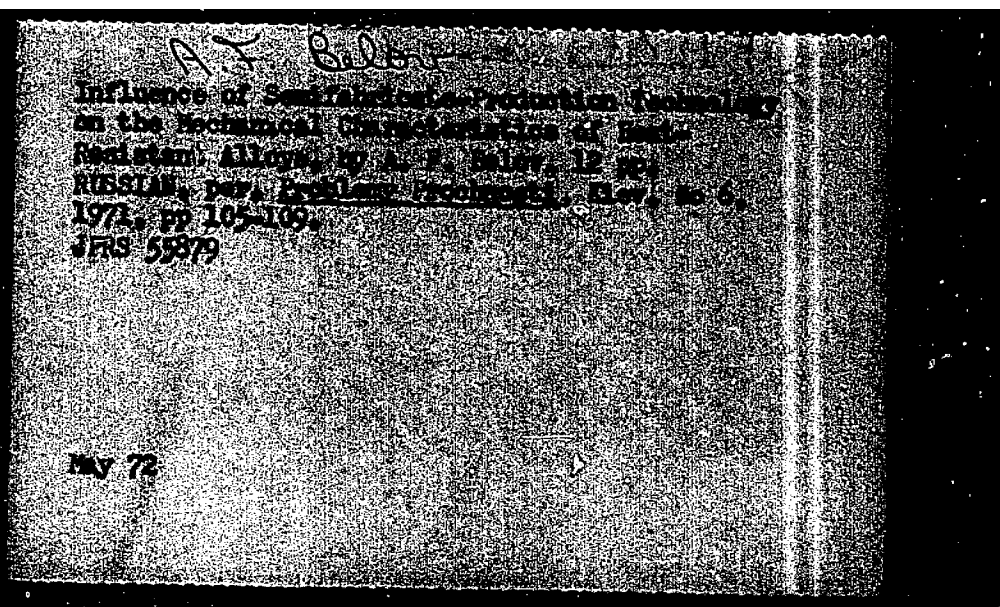 A.F. Belov
Influence of Semifabricate Production Technology
on the Mechanical Characteristics of Heat-
Resistant Alloys, by A. F. Belov, 12 pp.
RUSSIAN, per, Problemy Prochnosti, Kiev, No 6,
1971, pp 105-109.
JPRS 55879
May 72